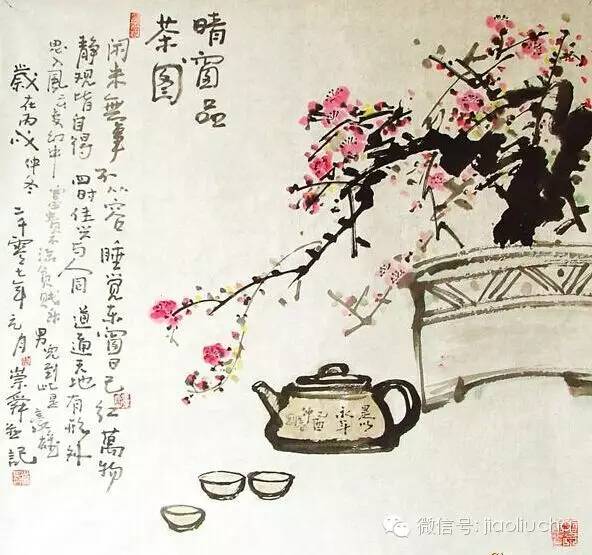 晴窗品
茶图
闲来無事不从容睡觉东窗日已红萬物
静观皆自得四时佳兴与人同道通天地有形外
思入風云变幻中富贵不淫贫贱乐男兒到此是豪雄
歲在丙戌仲冬二千零七年元月崇舜並記
是以
永年
微信号: